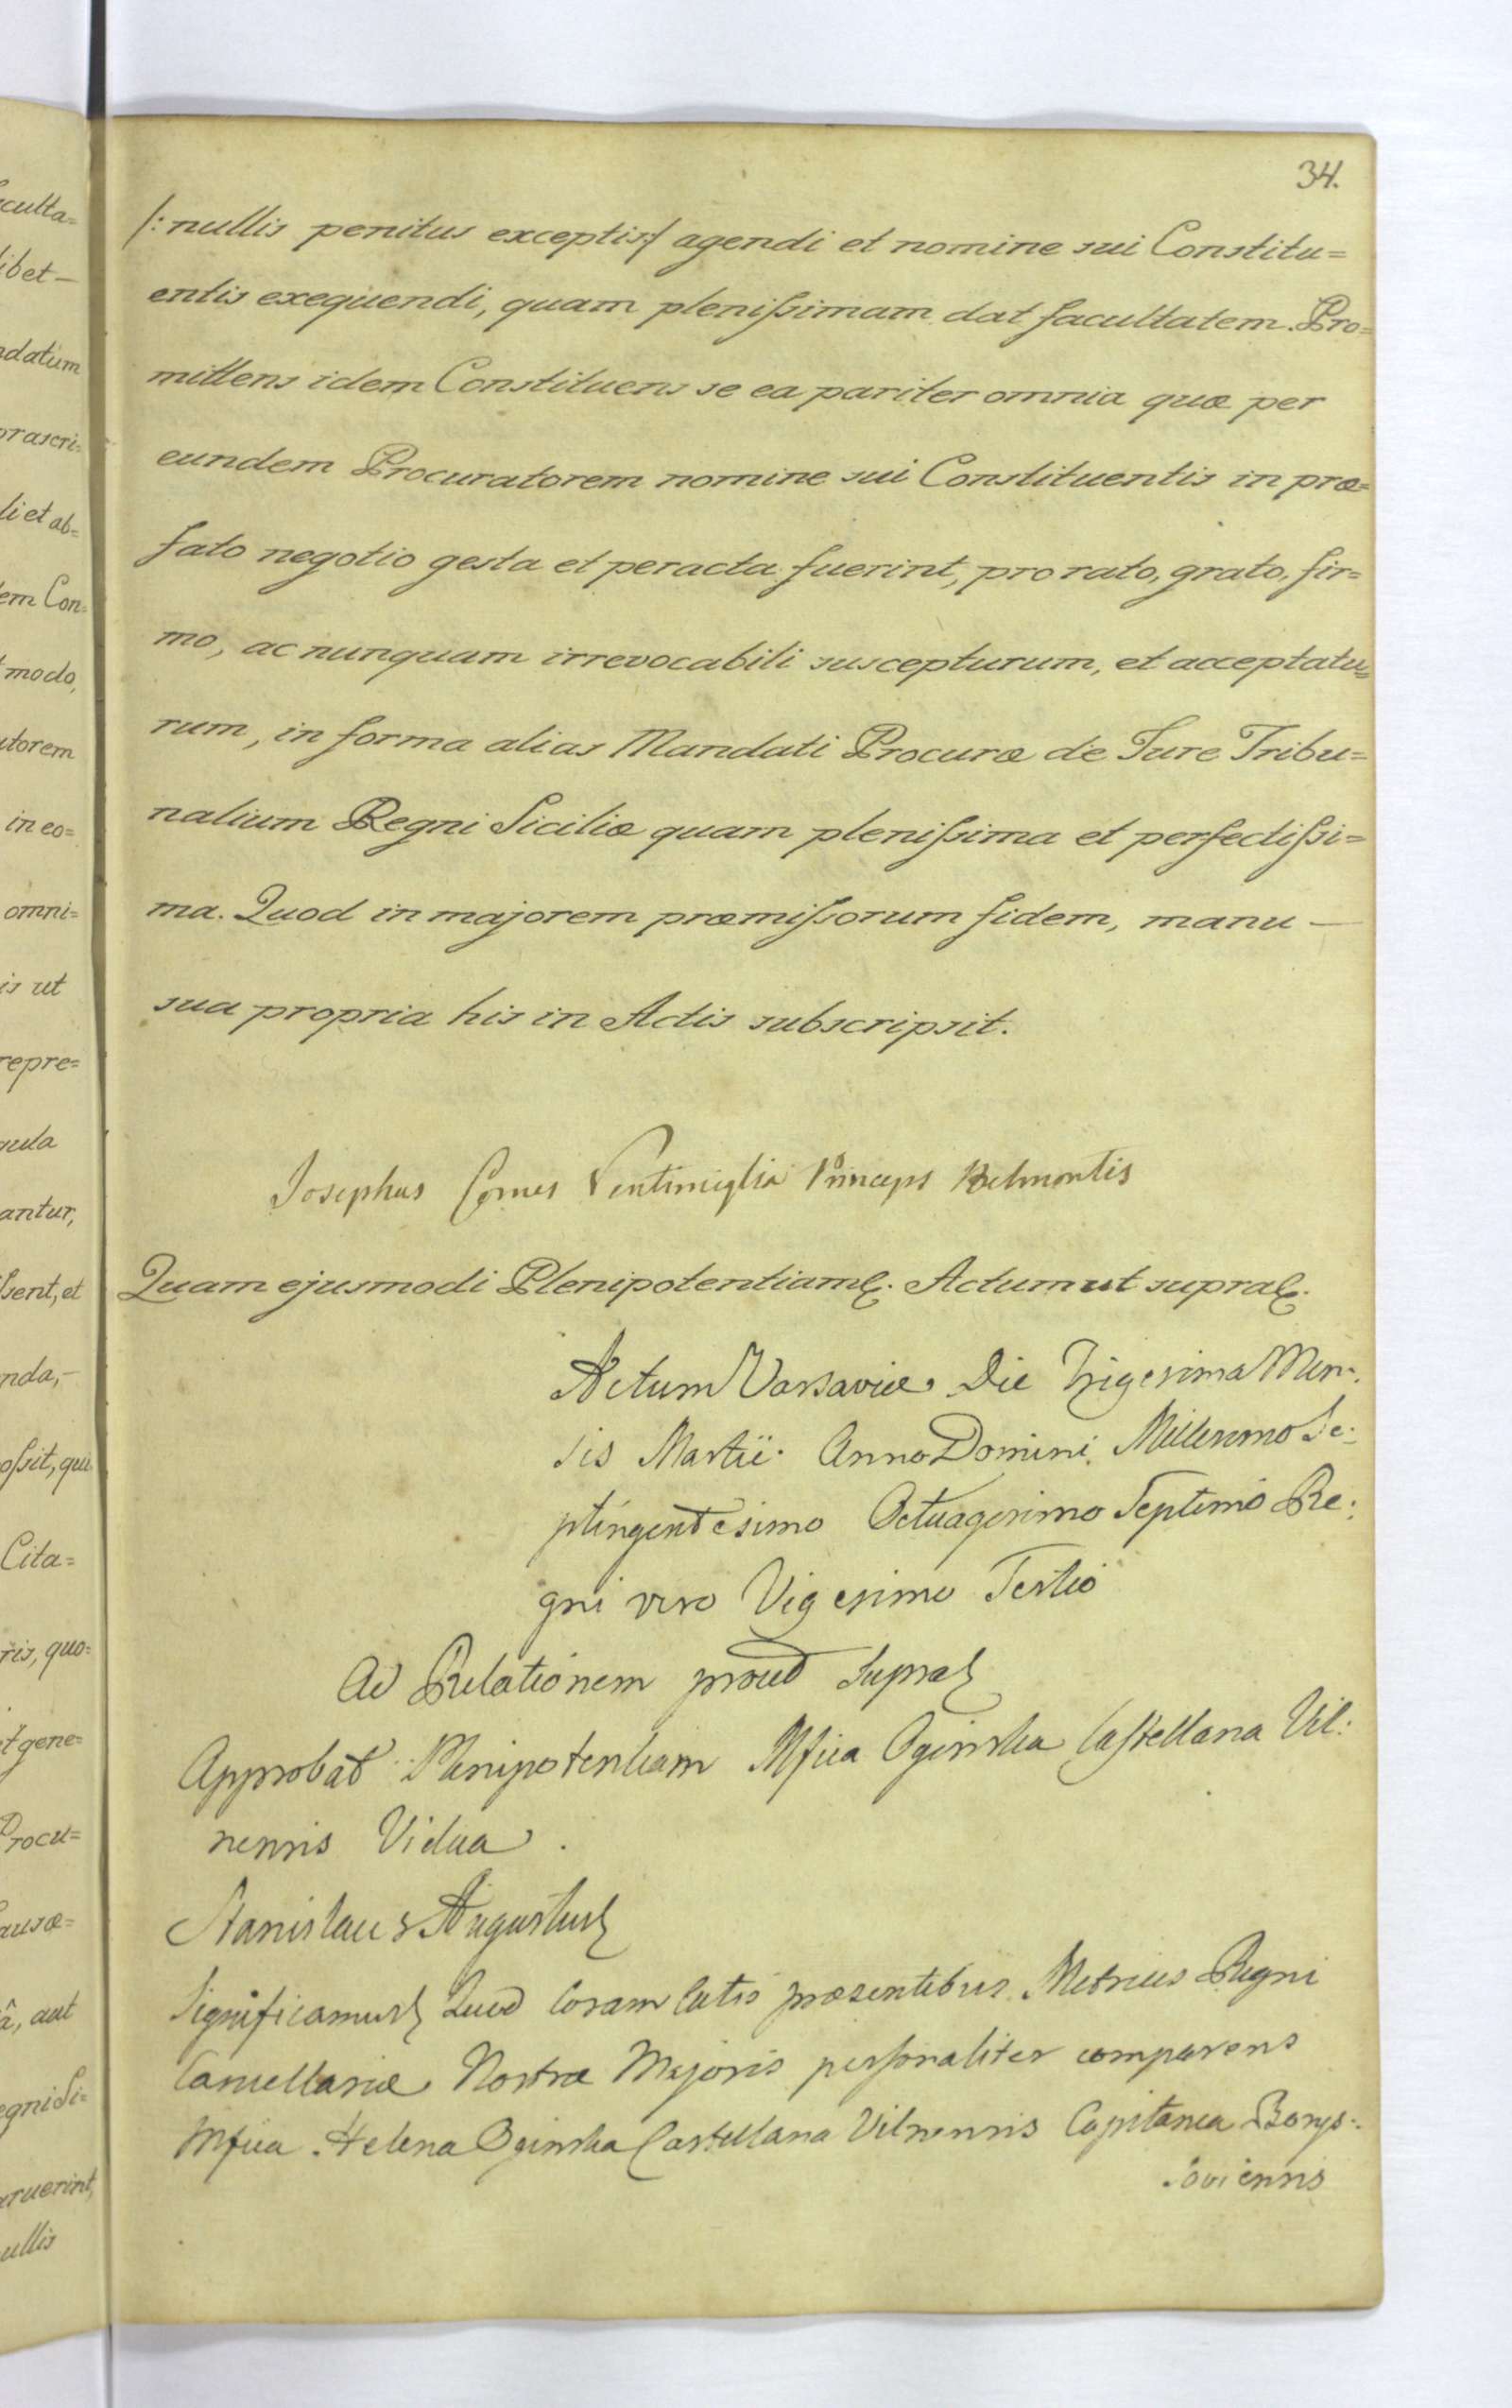 34.
/: nullis penitus exceptis :/ agendi et nomine sui Constitu=
entis exequendi, quam plenissimam dat facultatem. Pro=
mittens idem Constituens se ea pariter omnia quæ per
eundem Procuratorem nomine sui Constituentis in præ=
fato negotio gesta et peracta fuerint, pro rato, grato, fir=
mo, ac nunquam irrevocabili suscepturum, et acceptatu=
rum, in forma alias Mandati Procuræ de Jure Tribu=
nalium Regni Siciliæ quam plenissima et perfectissi=
ma. Quod in majorem præmissorum fidem, manu —
sua propria his in Actis subscripsit.
Josephus Comes Ventimiglia Princeps Belmontis
Quam ejusmodi Plenipotentiam &. Actum ut supra &.
Actum Varsaviæ Die Trigesima Men:
sis Martii. Anno Domini Millesimo Se:
ptingentesimo Octuagesimo Septimo Re:
gni vero Vigesimo Tertio
Ad Relationem prout supra &
Approbat Plenipotentiam Mfica Oginska Castellana Vil:
nensis Vidua.
Stanislaus Augustus &
Significamus & Quod Coram Actis præsentibus Metrices Regni
Cancellariæ Nostræ Majoris personaliter comparens
Mfica Helena Oginska Castellana Vilnensis Capitanea Borys:
soviensis
culta=
libet —
ndatum
præscri=
li et ab=
em Con=
modo,
utorem
in eo=
omni=
is ut
repre=
antur,
sent, et
nda, —
ossit, qui
Cita=
ris, quo=
t gene=
Procu=
ausæ=
â, aut
egni Si=
ruerint,
ullis